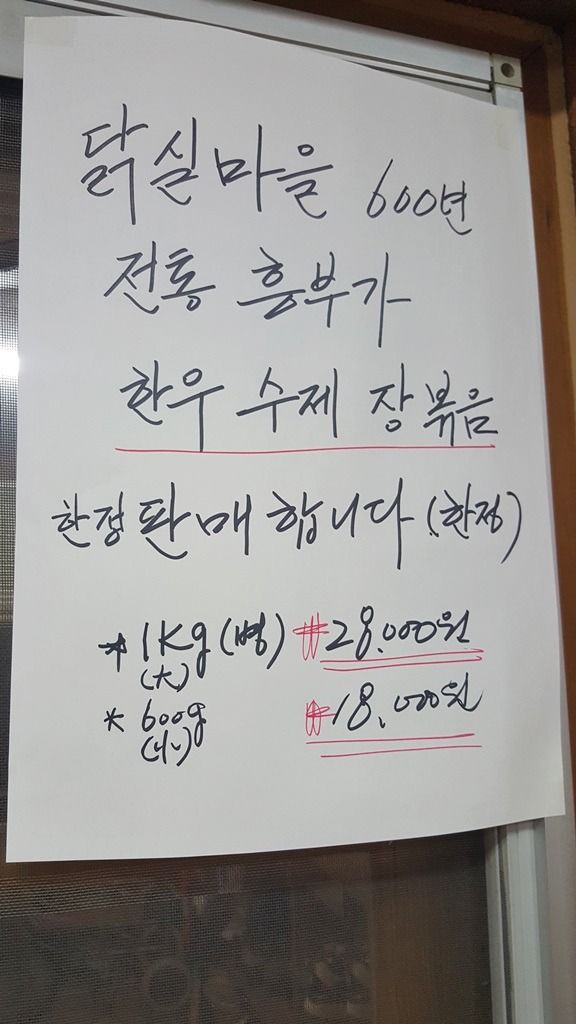 닭실마을 600년
전통 흥부가
한우 수제 장볶음
한정 판매 합니다 (한정)
* 1Kg (병) ₩28.000원
(大)
* 600g ₩18.000원
(小)